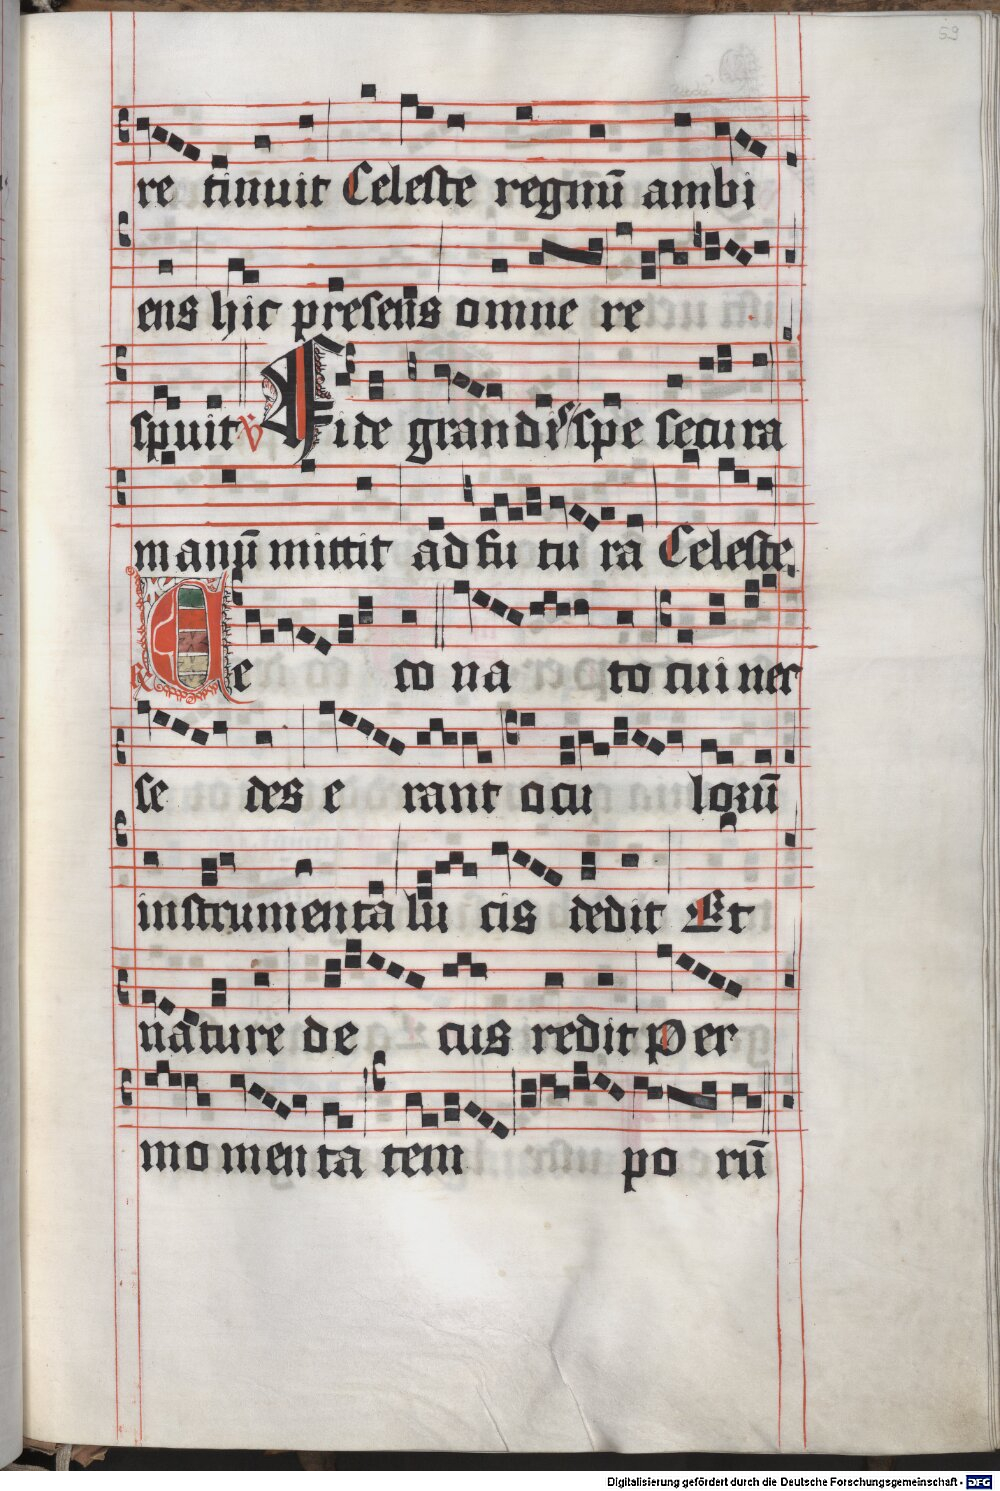 59
re tinuit Celeste regnū ambi
ens hic presens omne re
spuit v̄ Fide grandis spe secura
manū mittit ad fu tu ra Celeste.
R Ceco na to cui nec
se des e rant ocu lorū
instrumenta lu cis dedit Et
nature de cus redit Per
mo men ta tem po rū
Digitalisierung gefördert durch die Deutsche Forschungsgemeinschaft - DFG